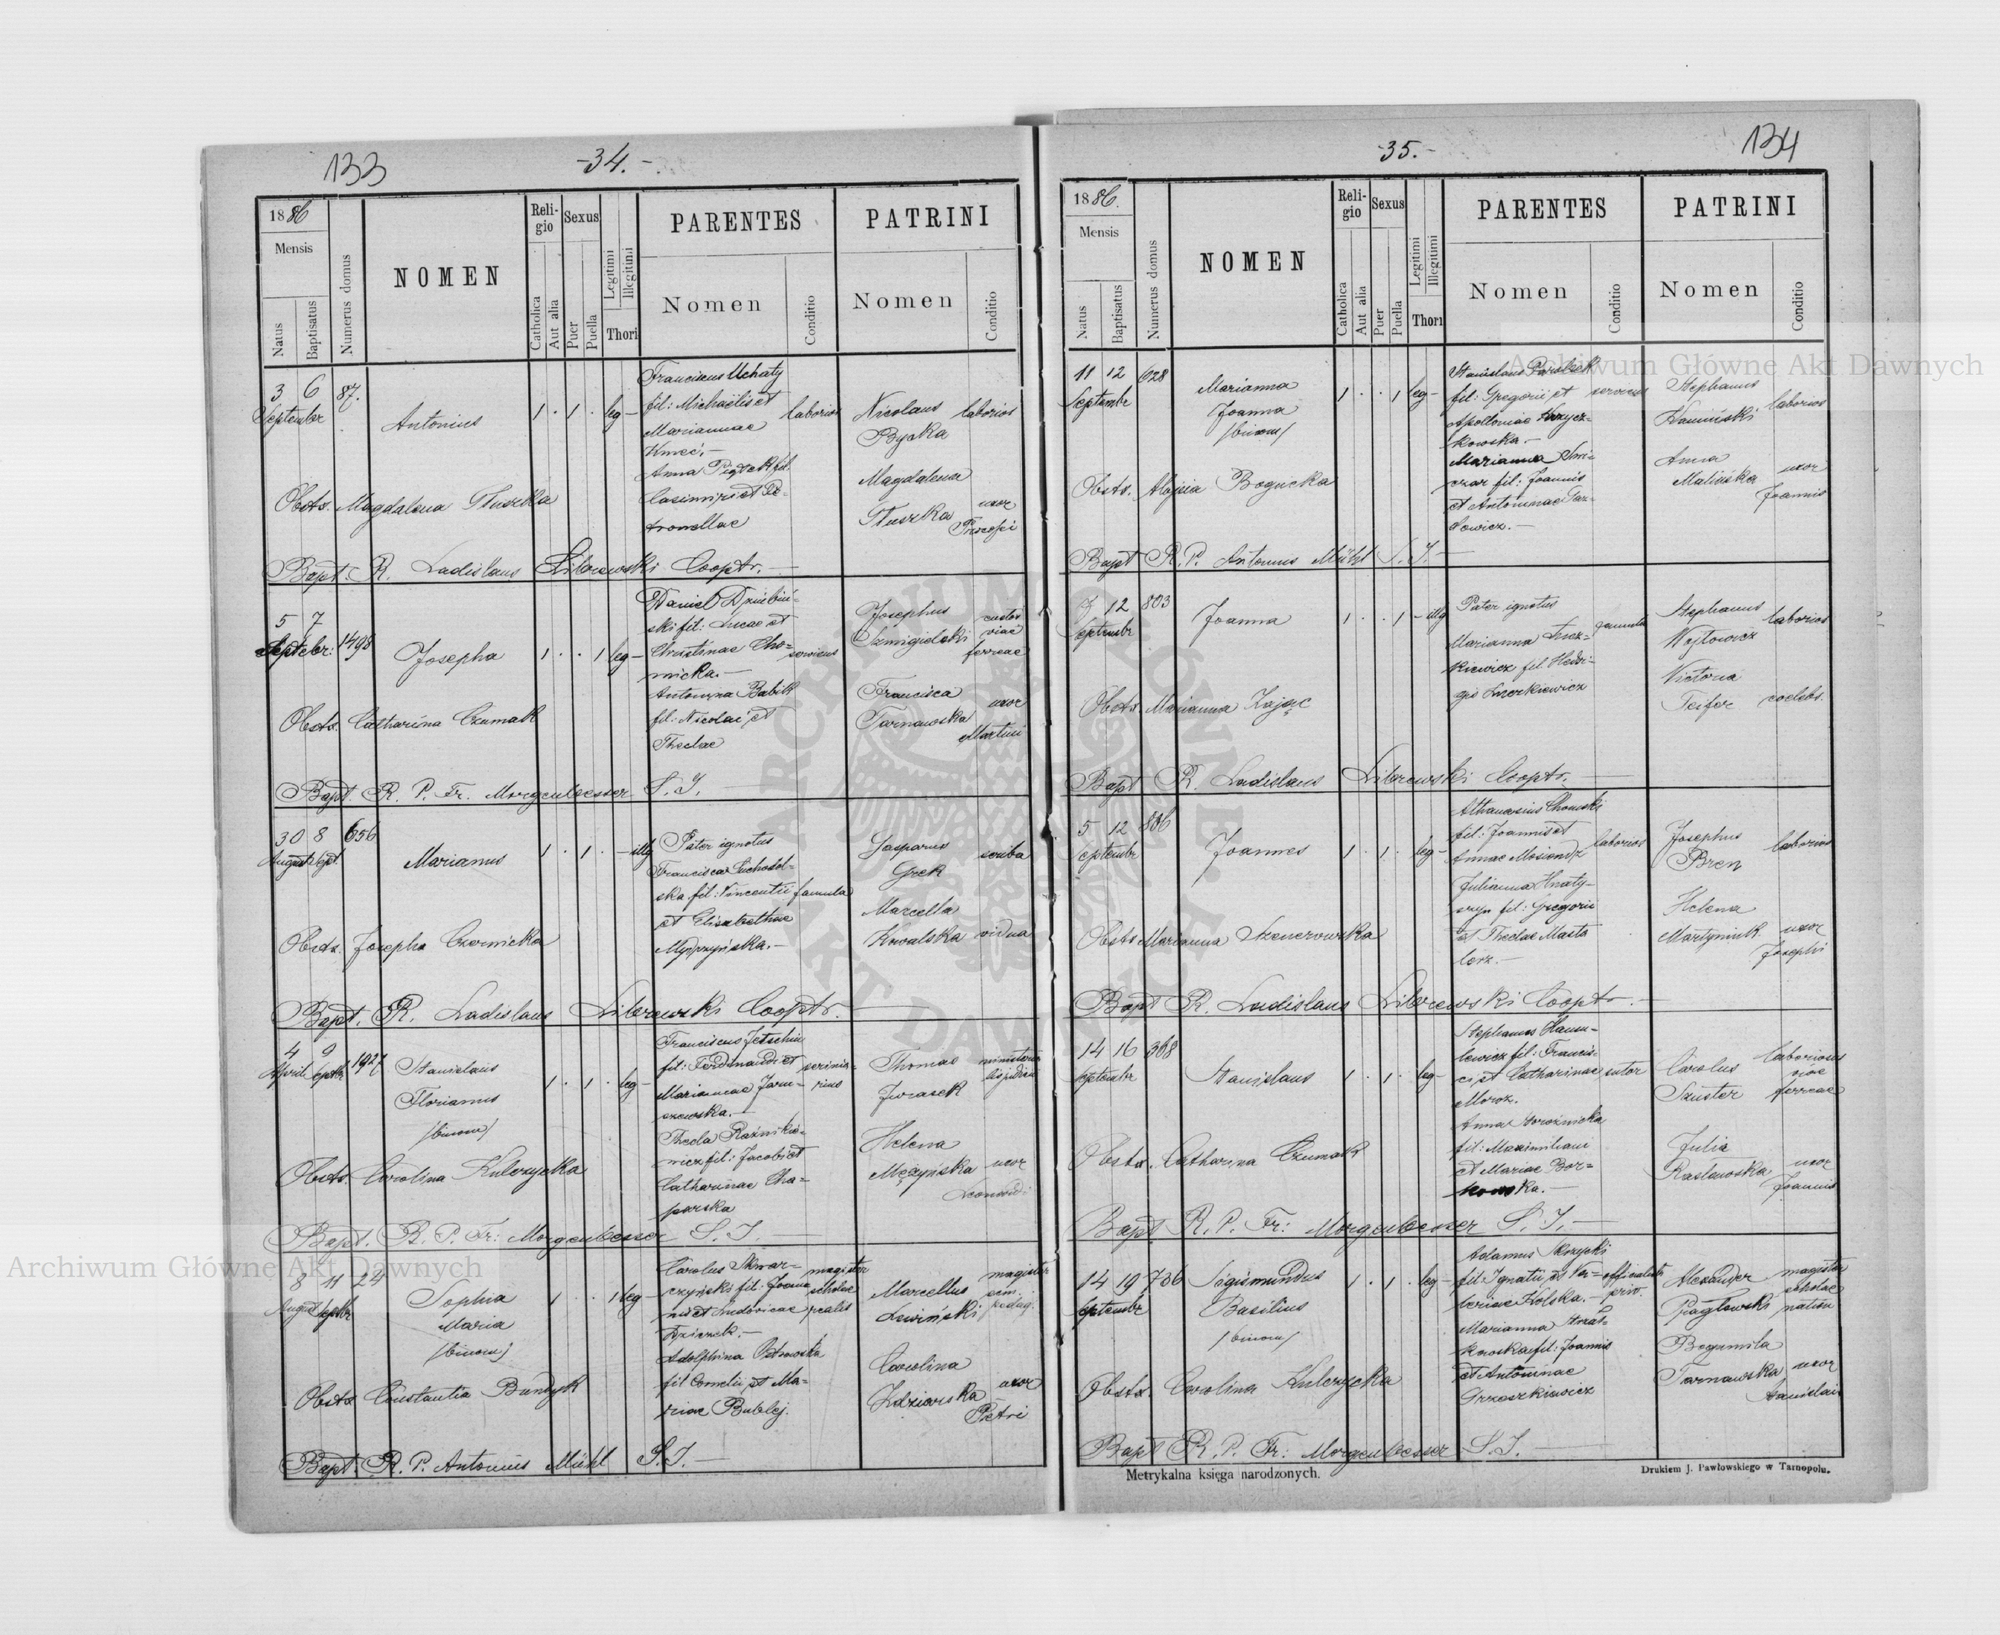 133
-34.-
1886
Mensis
Natus
Baptisatus
Numerus domus
NOMEN
Religio
Catholica
Aut alia
Sexus
Puer
Puella
Legitimi
Illegitimi
Thori
PARENTES
Nomen
Conditio
PATRINI
Nomen
Conditio
3 6 87.
September
Antonius
1 . 1 . leg -
Franciscus Uchaty
fil: Michaelis et
Mariannae
Kmeć. -
Anna
fil.
Casimiri et Pe-
tronellae
laborios
Nicolaus
Bycka
laborios
Magdalena
Słuszka
uxor
Procopi
Obst. Magdalena Słuszka
Bapt. R. Ladislaus Librewski Cooptr. -
5 7
Septebr: 1498
Josepha
1 . . 1 leg -
Daniel
ski fil: Lucae et
Christinae Cho-
micka. -
Antonina Babik
fil: Nicolai et
Theclae
servicus
Josephus
Szmigielski
custos
viae
ferreae
Francisca
Tarnawska
uxor
Martini
Obst. Catharina Czumak
Bapt. R. P. Fr. Morgenbesser S. J. -
30 8 656
August Sept
Marianus
1 . 1 . - illg
Pater ignotus
Francisca Suchodol-
ska fil: Vincentii
et Elisabethae
famula
Gasparus
Grek
scriba
Marcella
Kowalska
vidua
Obst. Josepha Czernicka
Bapt. R. Ladislaus Librewski Cooptr. -
4 9 1927
April Septbr
Stanislaus
Florianus
/binom/
1 . 1 . leg -
Franciscus
fil: Ferdinandi et
Mariannae Jaru-
szewska. -
Thecla
wicz fil: Jacobi et
Catharinae Cha-
parska
Thomas
Jurasek
Helena
Mężyńska
uxor
Leonardi
Obst. Carolina Kulczycka
Bapt. R. P. Fr: Morgenbesser S. J. -
8 11 24
August Septbr
Sophia
Maria
/binom/
1 . . 1 leg -
Carolus Skwar-
czyński fil: Joan-
nis et Ludovicae
magister
scholae
realis
Adolphina
fil Cornelii et Ma-
riae Bublej.
Marcellus
Lewiński
magister
sem.
pedag.
Carolina
uxor
Petri
Obst. Constantia Bundyk
Bapt. R. P. Antonius Mühl S. J. -
-35.-
134
1886.
Mensis
Natus
Baptisatus
Numerus domus
NOMEN
Religio
Catholica
Aut alia
Sexus
Puer
Puella
Legitimi
Illegitimi
Thori
PARENTES
Nomen
Conditio
PATRINI
Nomen
Conditio
11 12 628
Septembr
Marianna
Joanna
/binom/
1 . . 1 leg -
Stanislaus
fil: Gregorii et
Apolloniae Krzycz-
kowska. -
Marianna Smi-
czar fil: Joannis
et Antoninae
Stephanus
Kamiński
laborios
Anna
Malińska
uxor
Joannis
Obst. Alojsia Bogucka
Bapt R. P. Antonius Mühl S. J. -
7 12 803
Septembr
Joanna
1 . . 1 - illg
Pater ignotus
Marianna
kiewicz fil. Hedvi-
gis
famula
Stephanus
Wojtowicz
laborios
Victoria
Teifer
coelebs.
Obst. Marianna Zając
Bapt R. Ladislaus Librewski Cooptr. -
5 12 806
Septembr
Joannes
1 . 1 . leg -
Athanasius Chomski
fil: Joannis et
Annae
Julianna Hnaty-
szyn fil: Gregorii
et Theclae Masta
lerz. -
laborios
Josephus
Bren
laborios
Helena
Martyniuk
uxor
Josephi
Obst. Marianna
Bapt R. Ladislaus Librewski Cooptr. -
14 16 368
Septembr
Stanislaus
1 . 1 . leg -
Stephanus Hanu-
lewicz fil: Francis-
ci et Catharinae
Moroz.
Anna
fil: Maximiliani
et Mariae Bor-
kowska. -
sutor
Carolus
Szuster
laboriosus
viae
ferreae
Julia
Rastawska
uxor
Joannis
Obst. Catharina Czumak
Bapt R. P. Fr: Morgenbesser S. J. -
14 19 706
Septembr
Sigismundus
Basilius
/binom/
1 . 1 . leg -
Adamus Skrzycki
fil: Ignatii et Va-
leriae Kolska. -
officialista
priv.
Marianna
kowska fil: Joannis
et Antoninae
Grzeszkiewicz
Alexander
Pagłowski
magister
scholae
Bogumila
Tarnawska
uxor
Stanislai
Obst. Carolina Kulczycka
Bapt R. P. Fr: Morgenbesser S. J. -
Metrykalna księga narodzonych.
Drukiem J. Pawłowskiego w Tarnopolu.
Archiwum Główne Akt Dawnych
Archiwum Główne Akt Dawnych
ARCHIWUM GŁÓWNE AKT DAWNYCH